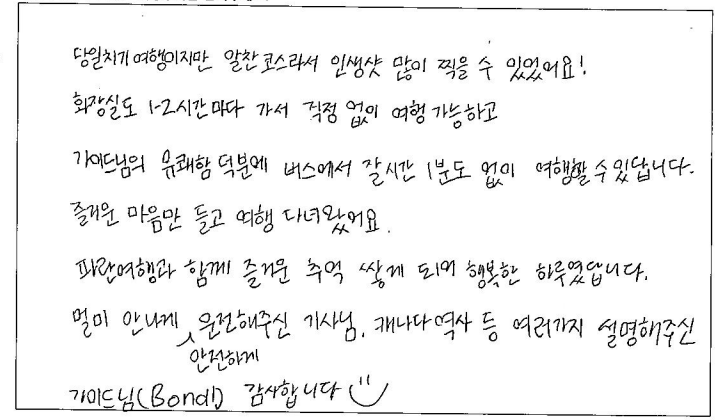 당일치기 여행이지만 알찬 코스라서 인생샷 많이 찍을 수 있었어요!
화장실도 1-2시간마다 가서 걱정 없이 여행 가능하고
가이드님의 유쾌함 덕분에 버스에서 잘시간 1분도 없이 여행할 수 있답니다.
즐거운 마음만 들고 여행 다녀왔어요.
파란여행과 함께 즐거운 추억 쌓게 되어 행복한 하루였답니다.
멀미 안나게 안전하게 운전해주신 기사님, 캐나다역사 등 여러가지 설명해주신
가이드님(Bondl) 감사합니다